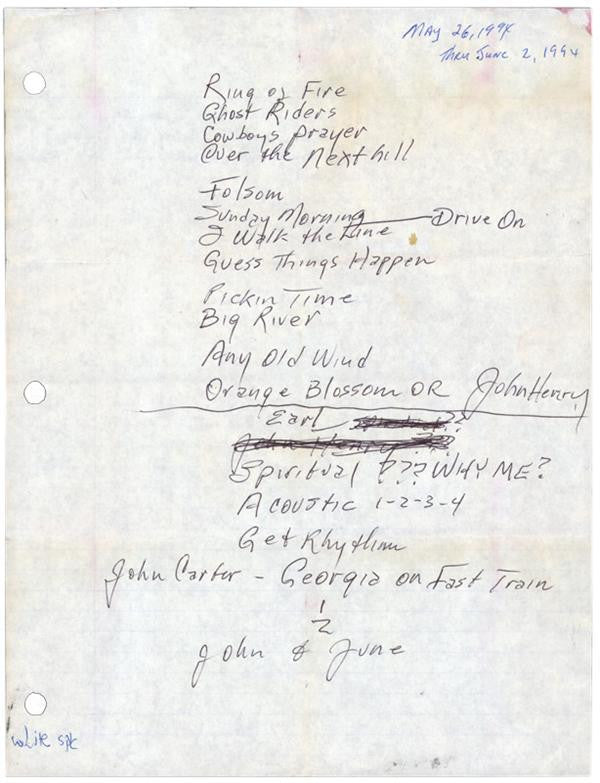 May 26, 1994
Thru June 2, 1994
Ring of Fire
Ghost Riders
Cowboys Prayer
Over the Next hill
Folsom
Sunday Morning — Drive On
I Walk the Line
Guess Things Happen
Pickin Time
Big River
Any Old Wind
Orange Blossom OR John Henry
Earl
John Henry
Spiritual ??? WHY ME?
Acoustic 1-2-3-4
Get Rhythm
John Carter - Georgia on Fast Train
1/2
John & June